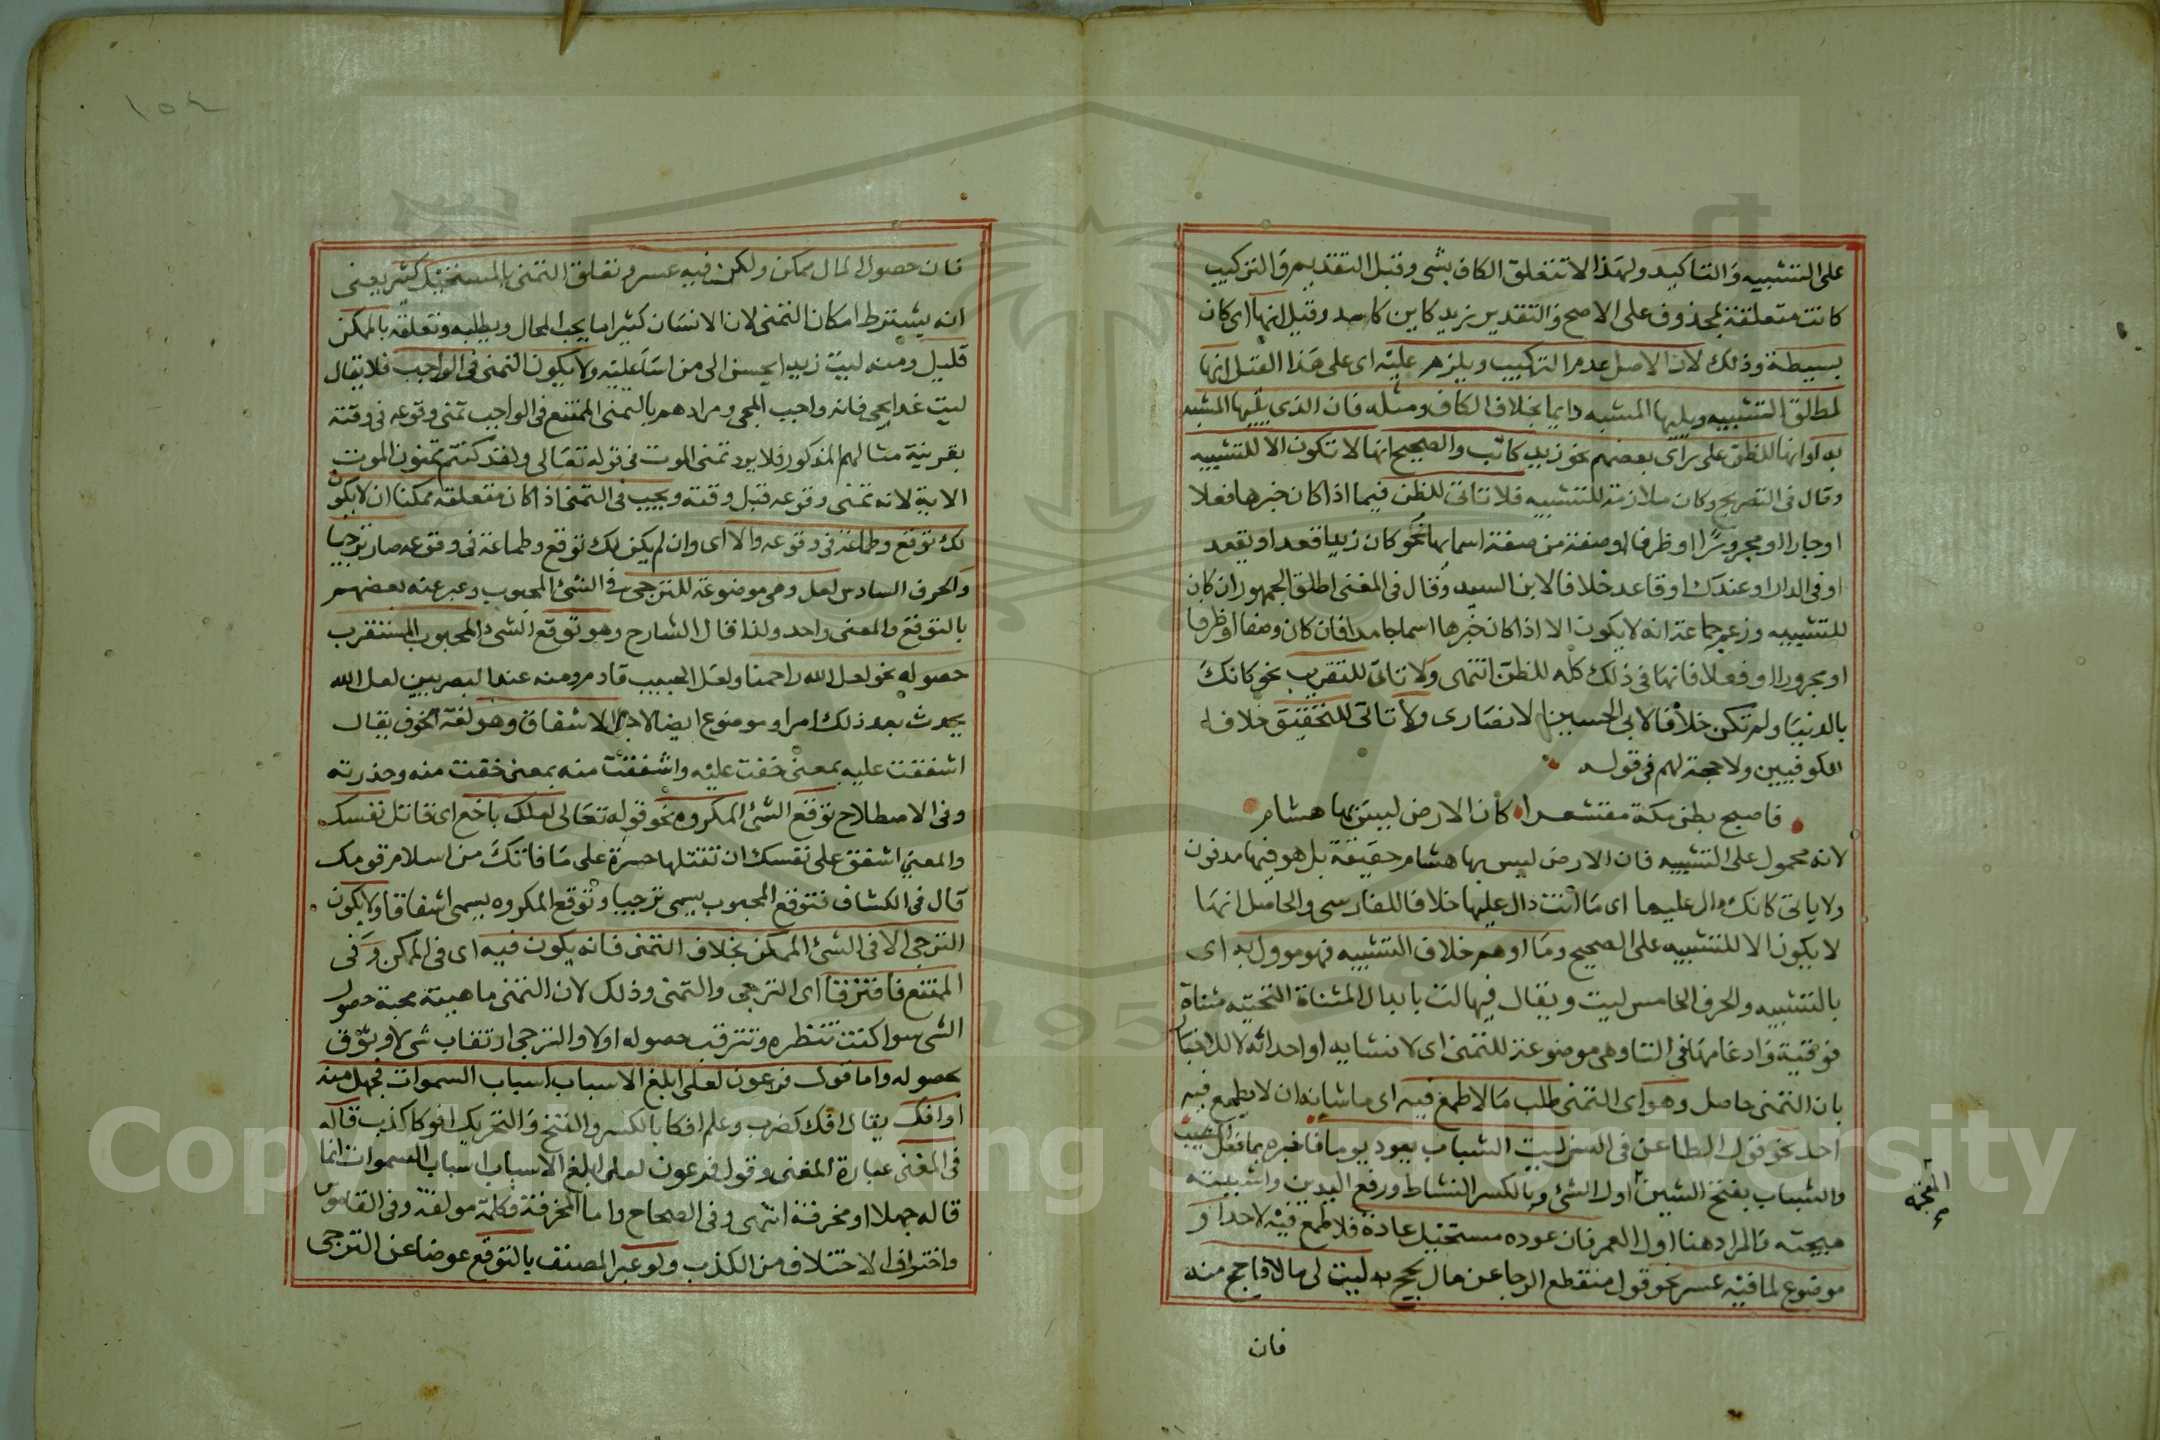 على التشبيه والتاكيد ولهذا لا تتعلق الكاف بشى وقبل التقديم والتركيب
كانت متعلقة بمحذوف على الاصح والتقدير زيد كاين كاسد وقيل انها اى كان
بسيطة وذلك لان الاصل عدم التركيب ويلزم عليه اى على هذا القيل انها
لمطلق التشبيه ويليها المشبه دايما بخلاف الكاف ومثله فان الذى يليها المشبه
به او انها للظن على راى بعضهم نحو زيد كاتب والصحيح انها لا تكون الا للتشبيه
وقال فى التصريح وكان ملازمة للتشبيه فلا تاتى للظن فيما اذا كان خبرها فعلا
او جارا او مجرورًا او ظرفا او صفة من صفة اسمايها نحو كان زيدا قعد او يقعد
او فى الدار او عندك او قاعد خلافا لابن السيد وقال فى المغنى اطلق الجمهور ان كان
للتشبيه وزعم جماعة انه لا يكون الا اذا كان خبرها اسما جامدا فان كان وصفا او ظرفا
او مجرورا او فعلا فانها فى ذلك كله للظن انتهى ولا تاتى للتقريب نحو كانك
بالدنيا ولم تكن خلافا لابى الحسين الانصارى ولا تاتى للتحقيق خلافا
للكوفيين ولا حجة لهم فى قوله
فاصبح بطن مكة مقشعرا كأن الارض ليس بها هشام
لانه محمول على التشبيه فان الارض ليس بها هشام حقيقة بل هو فيها مدفون
ولا ياتى كانك دال عليها اى ما انت دال عليها خلافا للفارسى والحاصل انها
لا يكون الا للتشبيه على الصحيح وما اوهم خلاف التشبيه فهو موول به اى
بالتشبيه والحرف الخامس ليت ويقال فيها لت بابدال المثناة التحتيه مثناة
فوقية وادغامها فى التا وهى موضوعة للتمنى اى لانشايه او احداثه لا للاخبار
بان التمنى حاصل وهو اى التمنى طلب ما لا طمع فيه اى ما شانه ان لا يطمع فيه
احد نحو قول الطاعن فى السن ليت الشباب يعود يوما فاخبره بما فعل المشيب
والشباب بفتح الشين اول الشى وبالكسر النشاط ورفع اليدين واشبيته
المعجمة
هيجته فالمراد هنا اول العمر فان عوده مستحيل عادة فلا طمع فيه لاحد او
موضوع لما فيه عسر نحو قول منقطع الرجا عن مال يحج به ليت لى مالا فاحج منه
فان
١٥٤
فان حصول المال ممكن ولكن فيه عسر وتعلق التمنى بالمستحيل كثير يعنى
انه يشترط امكان التمنى لان الانسان كثيرا ما يحب المحال ويطلبه وتعلقه بالممكن
قليل ومنه ليت زيدا يحسن الى من اسا عليه ولا يكون التمنى فى الواجب فلا يقال
ليت غدا يجى فانه واجب المجى ومرادهم بالتمنى الممتنع فى الواجب تمنى وقوعه فى وقته
بقرينة مثالهم المذكور فلا يرد تمنى الموت فى قوله تعالى ولقد كنتم تمنون الموت
الاية لانه تمنى وقوعه قبل وقته ويجب فى التمنى اذا كان متعلقه ممكنا ان لا يكون
لك توقع وطماعة فى وقوعه والا اى وان لم يكن لك توقع وطماعة فى وقوعه صار ترجيا
والحرف السادس لعل وهى موضوعة للترجى فى الشئ المحبوب وعبر عنه بعضهم
بالتوقع والمعنى واحد ولذا قال الشارح وهو توقع الشئ المحبوب المستقرب
حصوله نحو لعل الله راحمنا ولعل الحبيب قادم ومنه عند البصريين لعل الله
يحدث بعد ذلك امرا وموضوع ايضا لاجل الاشفاق وهو لغة الخوف يقال
اشفقت عليه بمعنى خفت عليه واشفقت منه بمعنى خفت منه وحذرته
وفى الاصطلاح توقع الشئ المكروه نحو قوله تعالى لعلك باخع اى قاتل نفسك
والمعنى اشفق على نفسك ان تقتلها حسرة على ما فاتك من اسلام قومك
قال فى الكشاف فتوقع المحبوب يسمى ترجيا وتوقع المكروه يسمى اشفاقا ولا يكون
الترجى الا فى الشئ الممكن بخلاف التمنى فانه يكون فيه اى فى الممكن وفى
الممتنع فافترقا اى الترجى والتمنى وذلك لان التمنى ماهيته محبة حصول
الشى سوا كنت تنتظره وتترقب حصوله اولا والترجى ارتقاب شى لا وثوق
بحصوله واما قول فرعون لعلى ابلغ الاسباب اسباب السموات فجهل منه
او افك يقال افك كضرب وعلم افكا بالكسر والفتح والتحريك افوكا كذب قاله
فى المغنى عبارة المغنى وقول فرعون لعلى ابلغ الاسباب اسباب السموات انما
قاله جهلا او مخرقة انتهى وفى الصحاح واما المخرقة فكلمة مولفة وفى القاموس
واختراق الاختلاف من الكذب ولو عبر المصنف بالتوقع عوضا عن الترجى